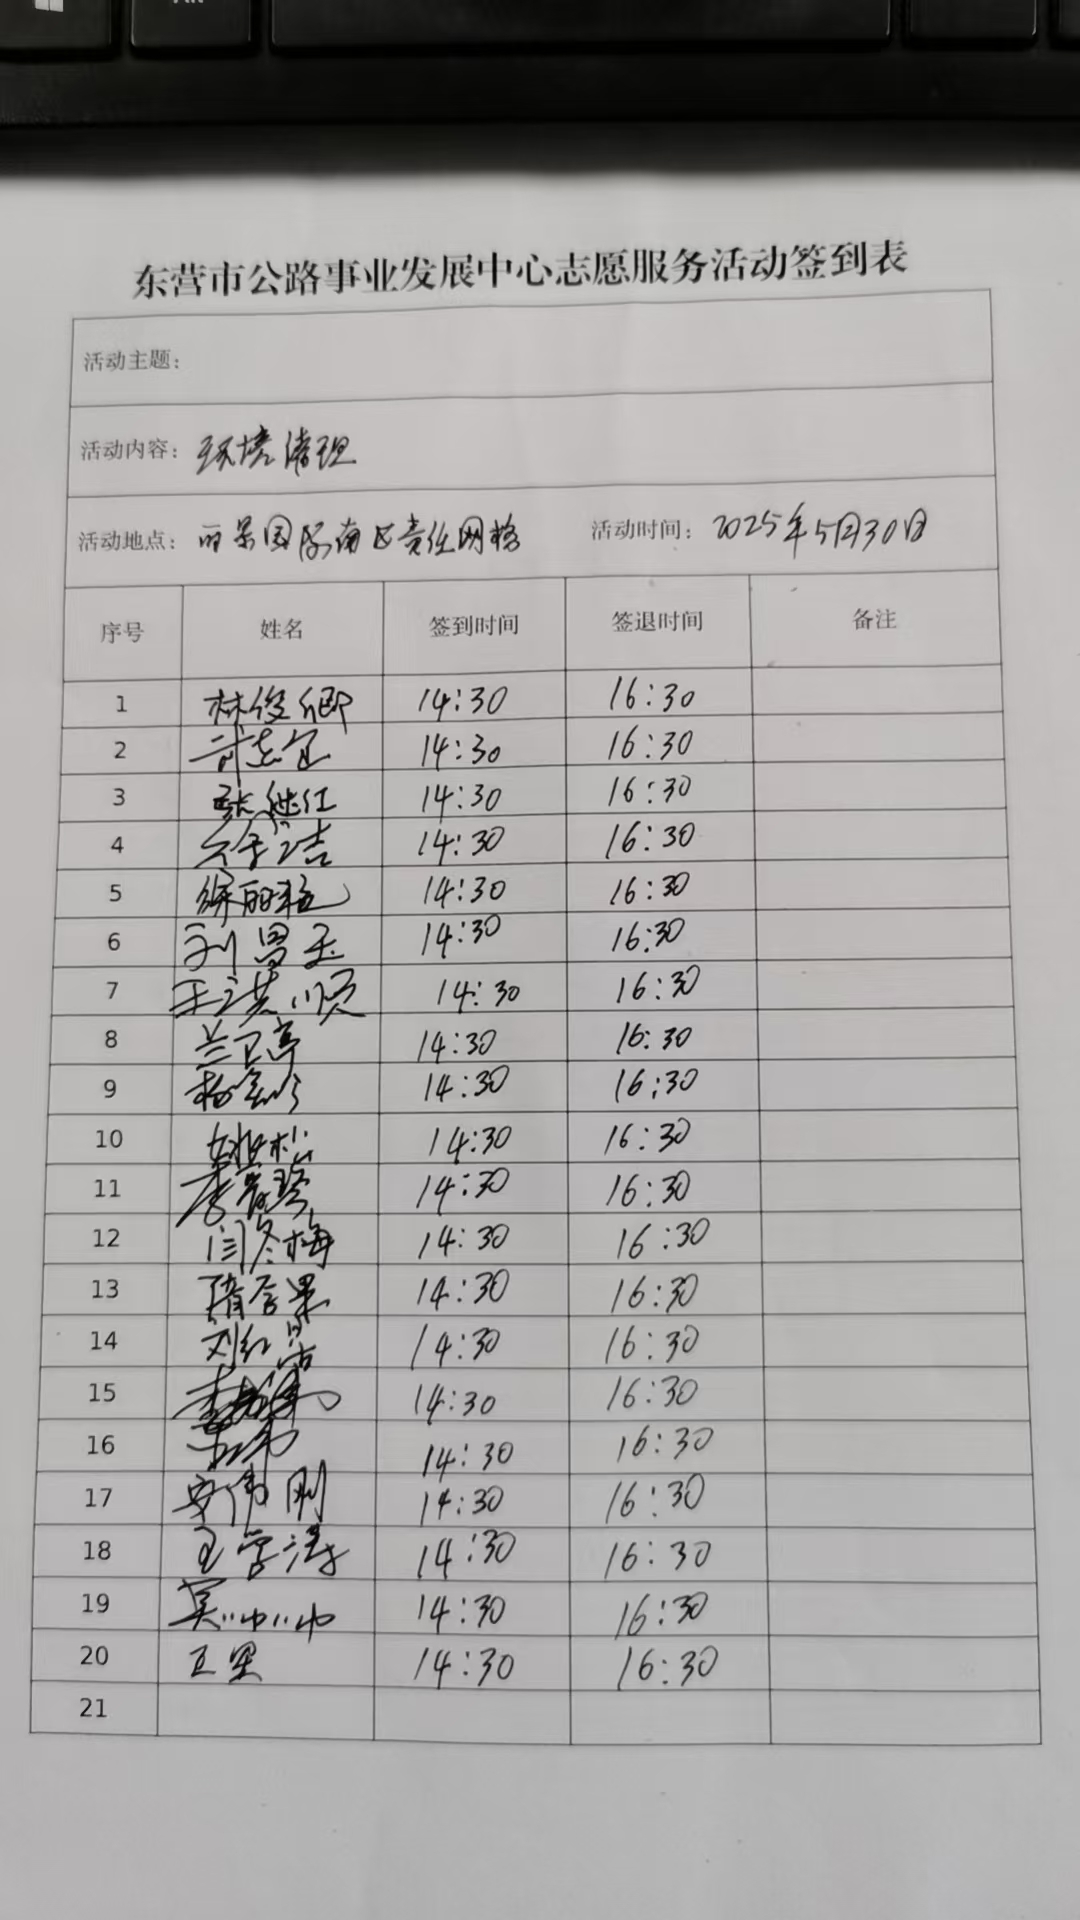 东营市公路事业发展中心志愿服务活动签到表
活动主题：
活动内容：环境清理
活动地点：丽景国际南区责任网格 活动时间：2025年5月30日
序号 姓名 签到时间 签退时间 备注
1 林俊卿 14:30 16:30
2 14:30 16:30
3 张继红 14:30 16:30
4 14:30 16:30
5 14:30 16:30
6 刘昌玉 14:30 16:30
7 王洪顺 14:30 16:30
8 兰卫亭 14:30 16:30
9 14:30 16:30
10 14:30 16:30
11 14:30 16:30
12 闫冬梅 14:30 16:30
13 14:30 16:30
14 14:30 16:30
15 14:30 16:30
16 14:30 16:30
17 安伟刚 14:30 16:30
18 王学涛 14:30 16:30
19 14:30 16:30
20 王星 14:30 16:30
21